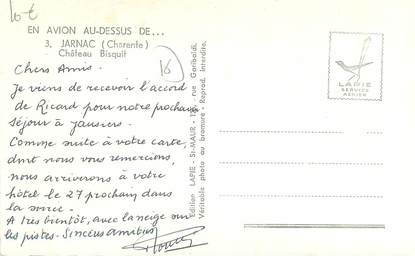 10€
EN AVION AU-DESSUS DE...
3. JARNAC (Charente)
Château Bisquit
16
Chers Amis.
Je viens de recevoir l'accord
de Ricard pour notre prochain
séjour à Jausiers.
Comme suite à votre carte,
dont nous vous remercions,
nous arriverons à votre
hôtel le 27 prochain dans
la soirée.
A très bientôt, avec la neige sur
les pistes. Sincères amitiés
Edition LAPIE - St-MAUR - rue Garibaldi.
Véritable photo au bromure - Reprod. interdite.
LAPIE
SERVICE
AERIEN